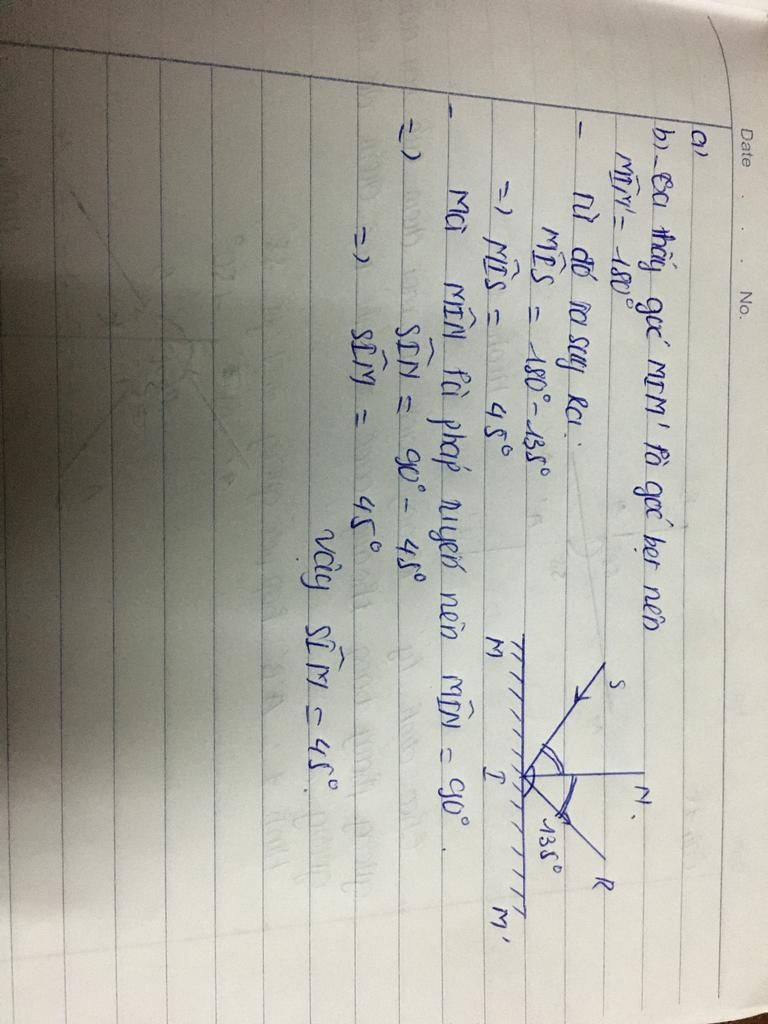 Date . . . No.
a)
b) - Ta thấy góc MIM' là góc bẹt nên
MIM' = 180°
- Từ đó ta suy ra:
MIS = 180° - 135°
=> MIS = 45°
- Mà MIN là pháp tuyến nên MIN = 90°
=> SIN = 90° - 45°
=> SIM = 45°
Vậy SIM = 45°
S
N
R
135°
M
I
M'